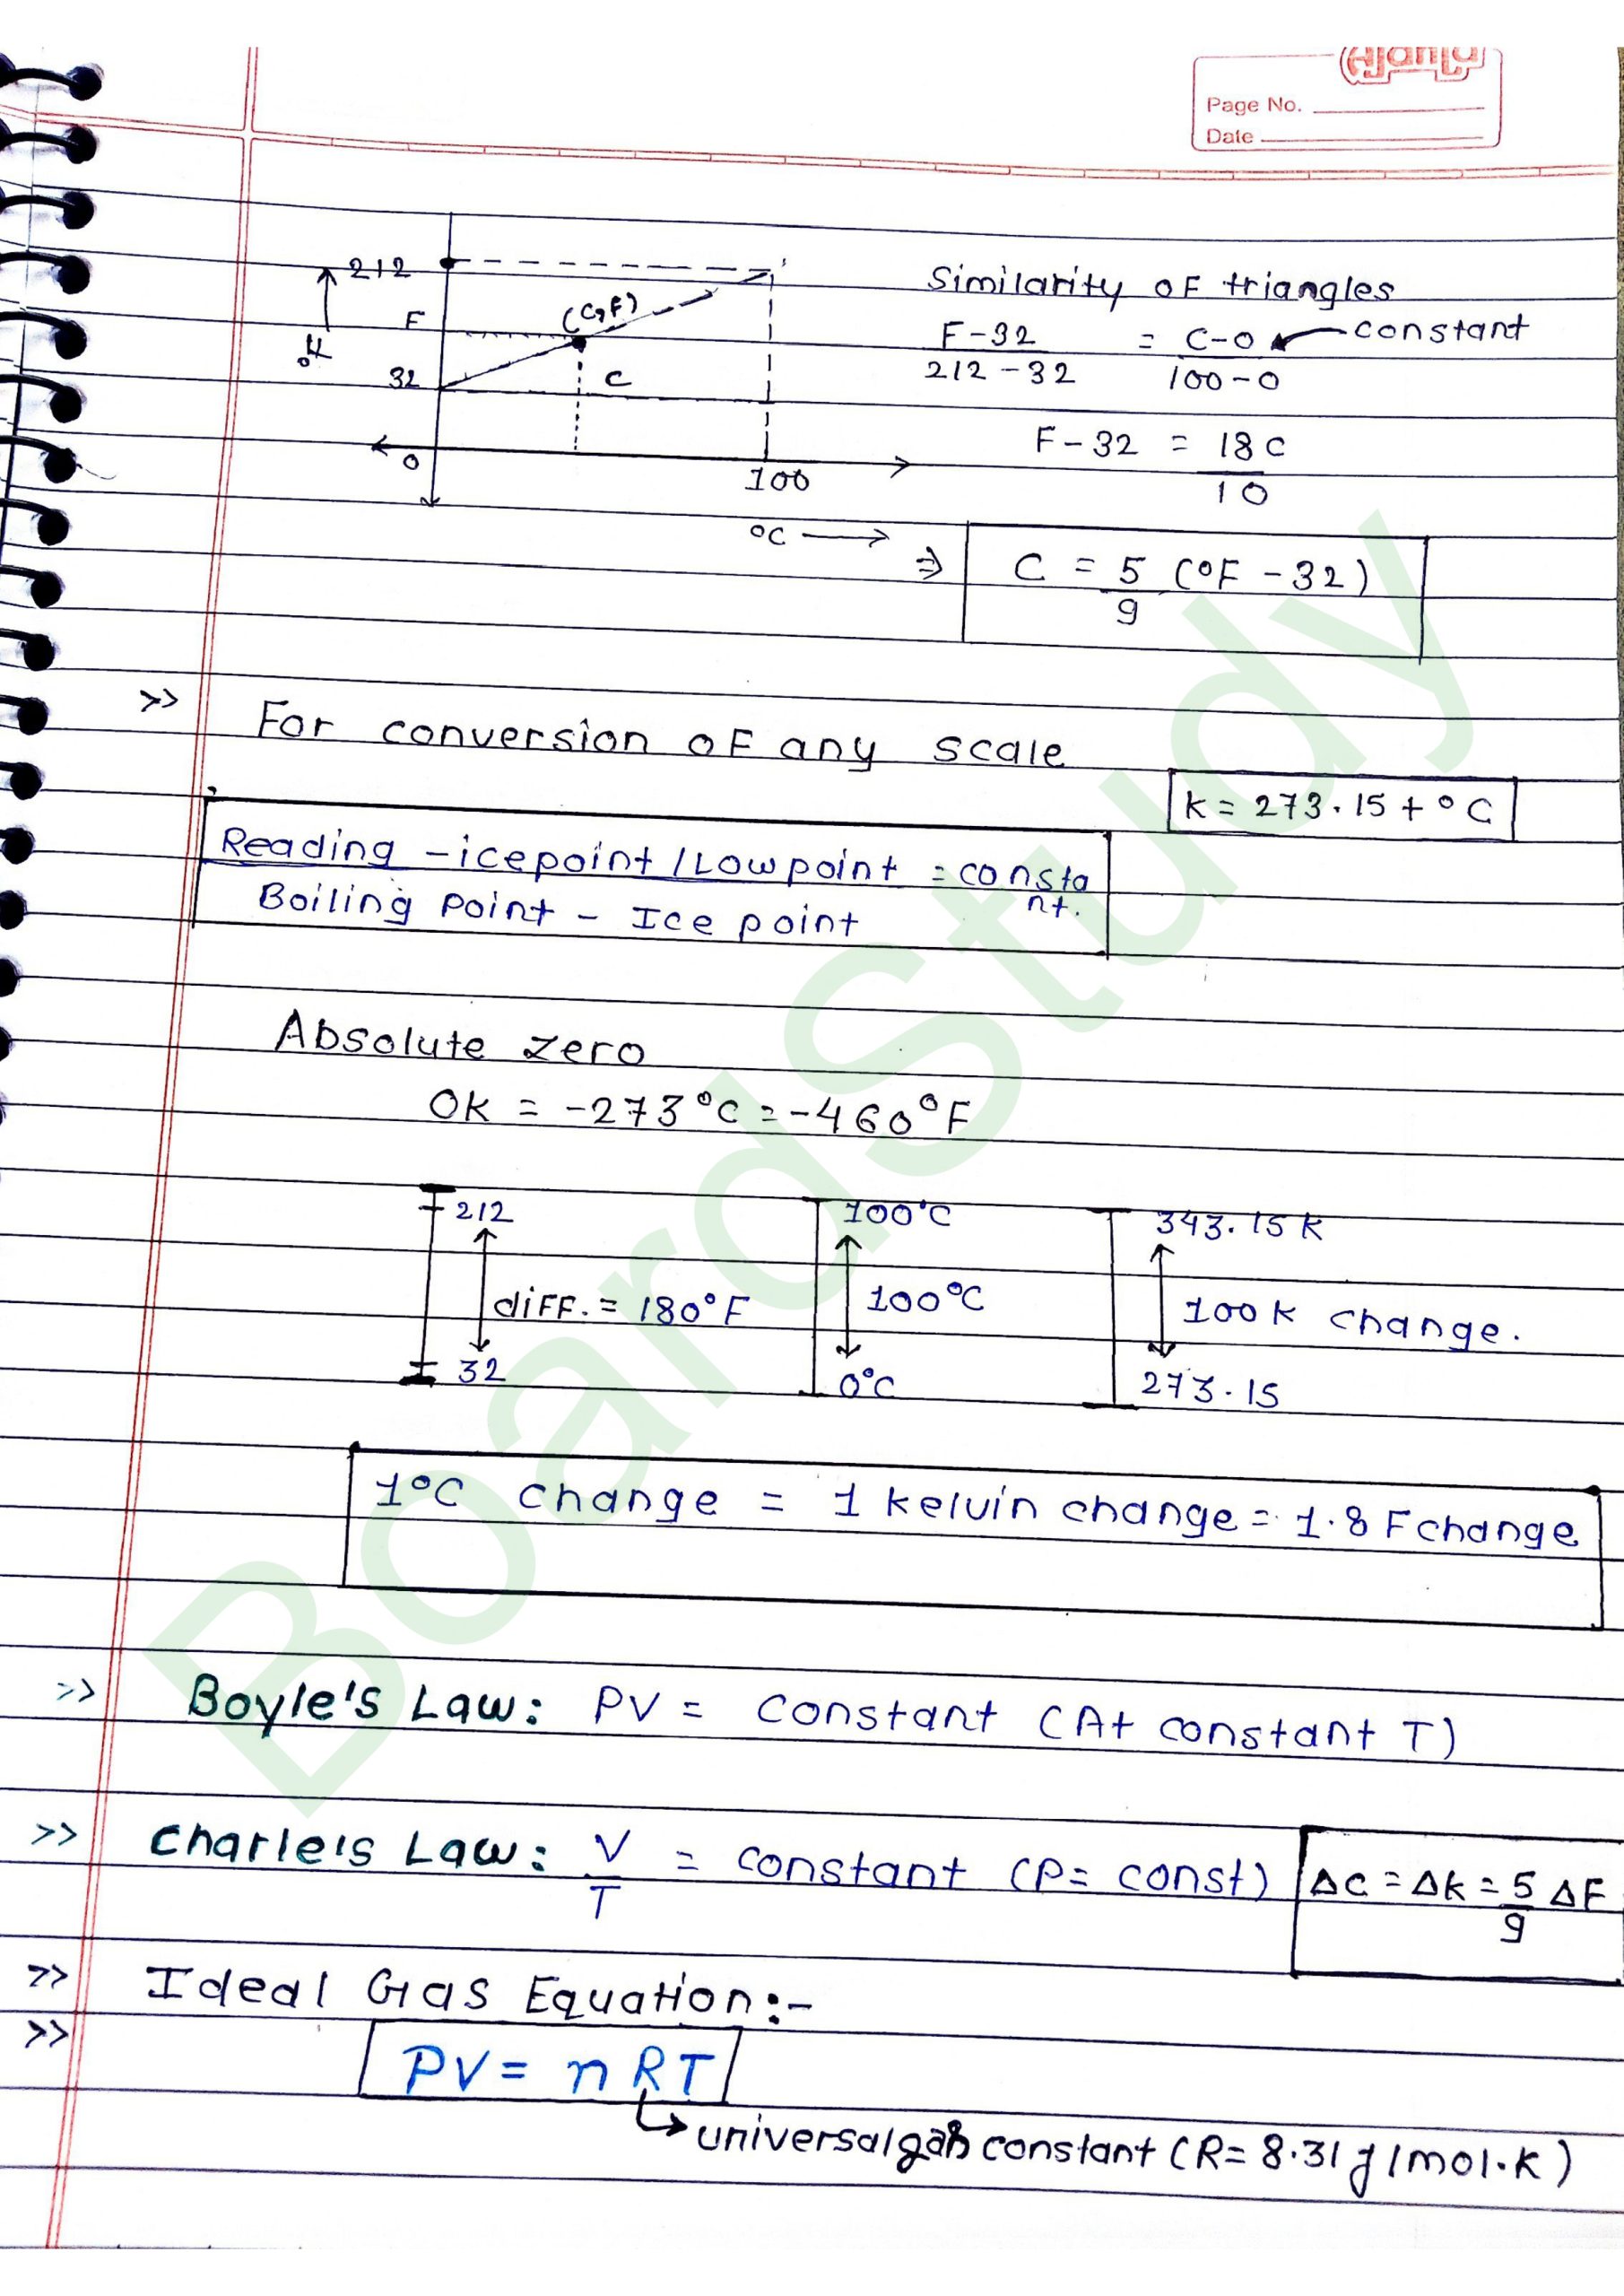 Ajanta
Page No.
Date
212
F
(C,F)
32
C
°F
0
100
°C
Similarity of triangles
F-32 = C-0 constant
212-32 100-0
F-32 = 18C
10
⇒ C = 5 (°F - 32)
9
>> For conversion of any scale
K = 273.15 + °C
Reading - icepoint / Low point = consta
nt.
Boiling Point - Ice point
Absolute zero
0K = -273°C = -460°F
212 100°C 343.15 K
diff. = 180°F 100°C 100K change.
32 0°C 273.15
1°C change = 1 kelvin change = 1.8 F change
>> Boyle's Law: PV = constant (At constant T)
>> Charle's Law: V = constant (P = const)
T
ΔC = ΔK = 5 ΔF
9
>> Ideal Gas Equation:-
>> PV = nRT
universal gas constant (R = 8.31 J/mol.K)
BoardStudy